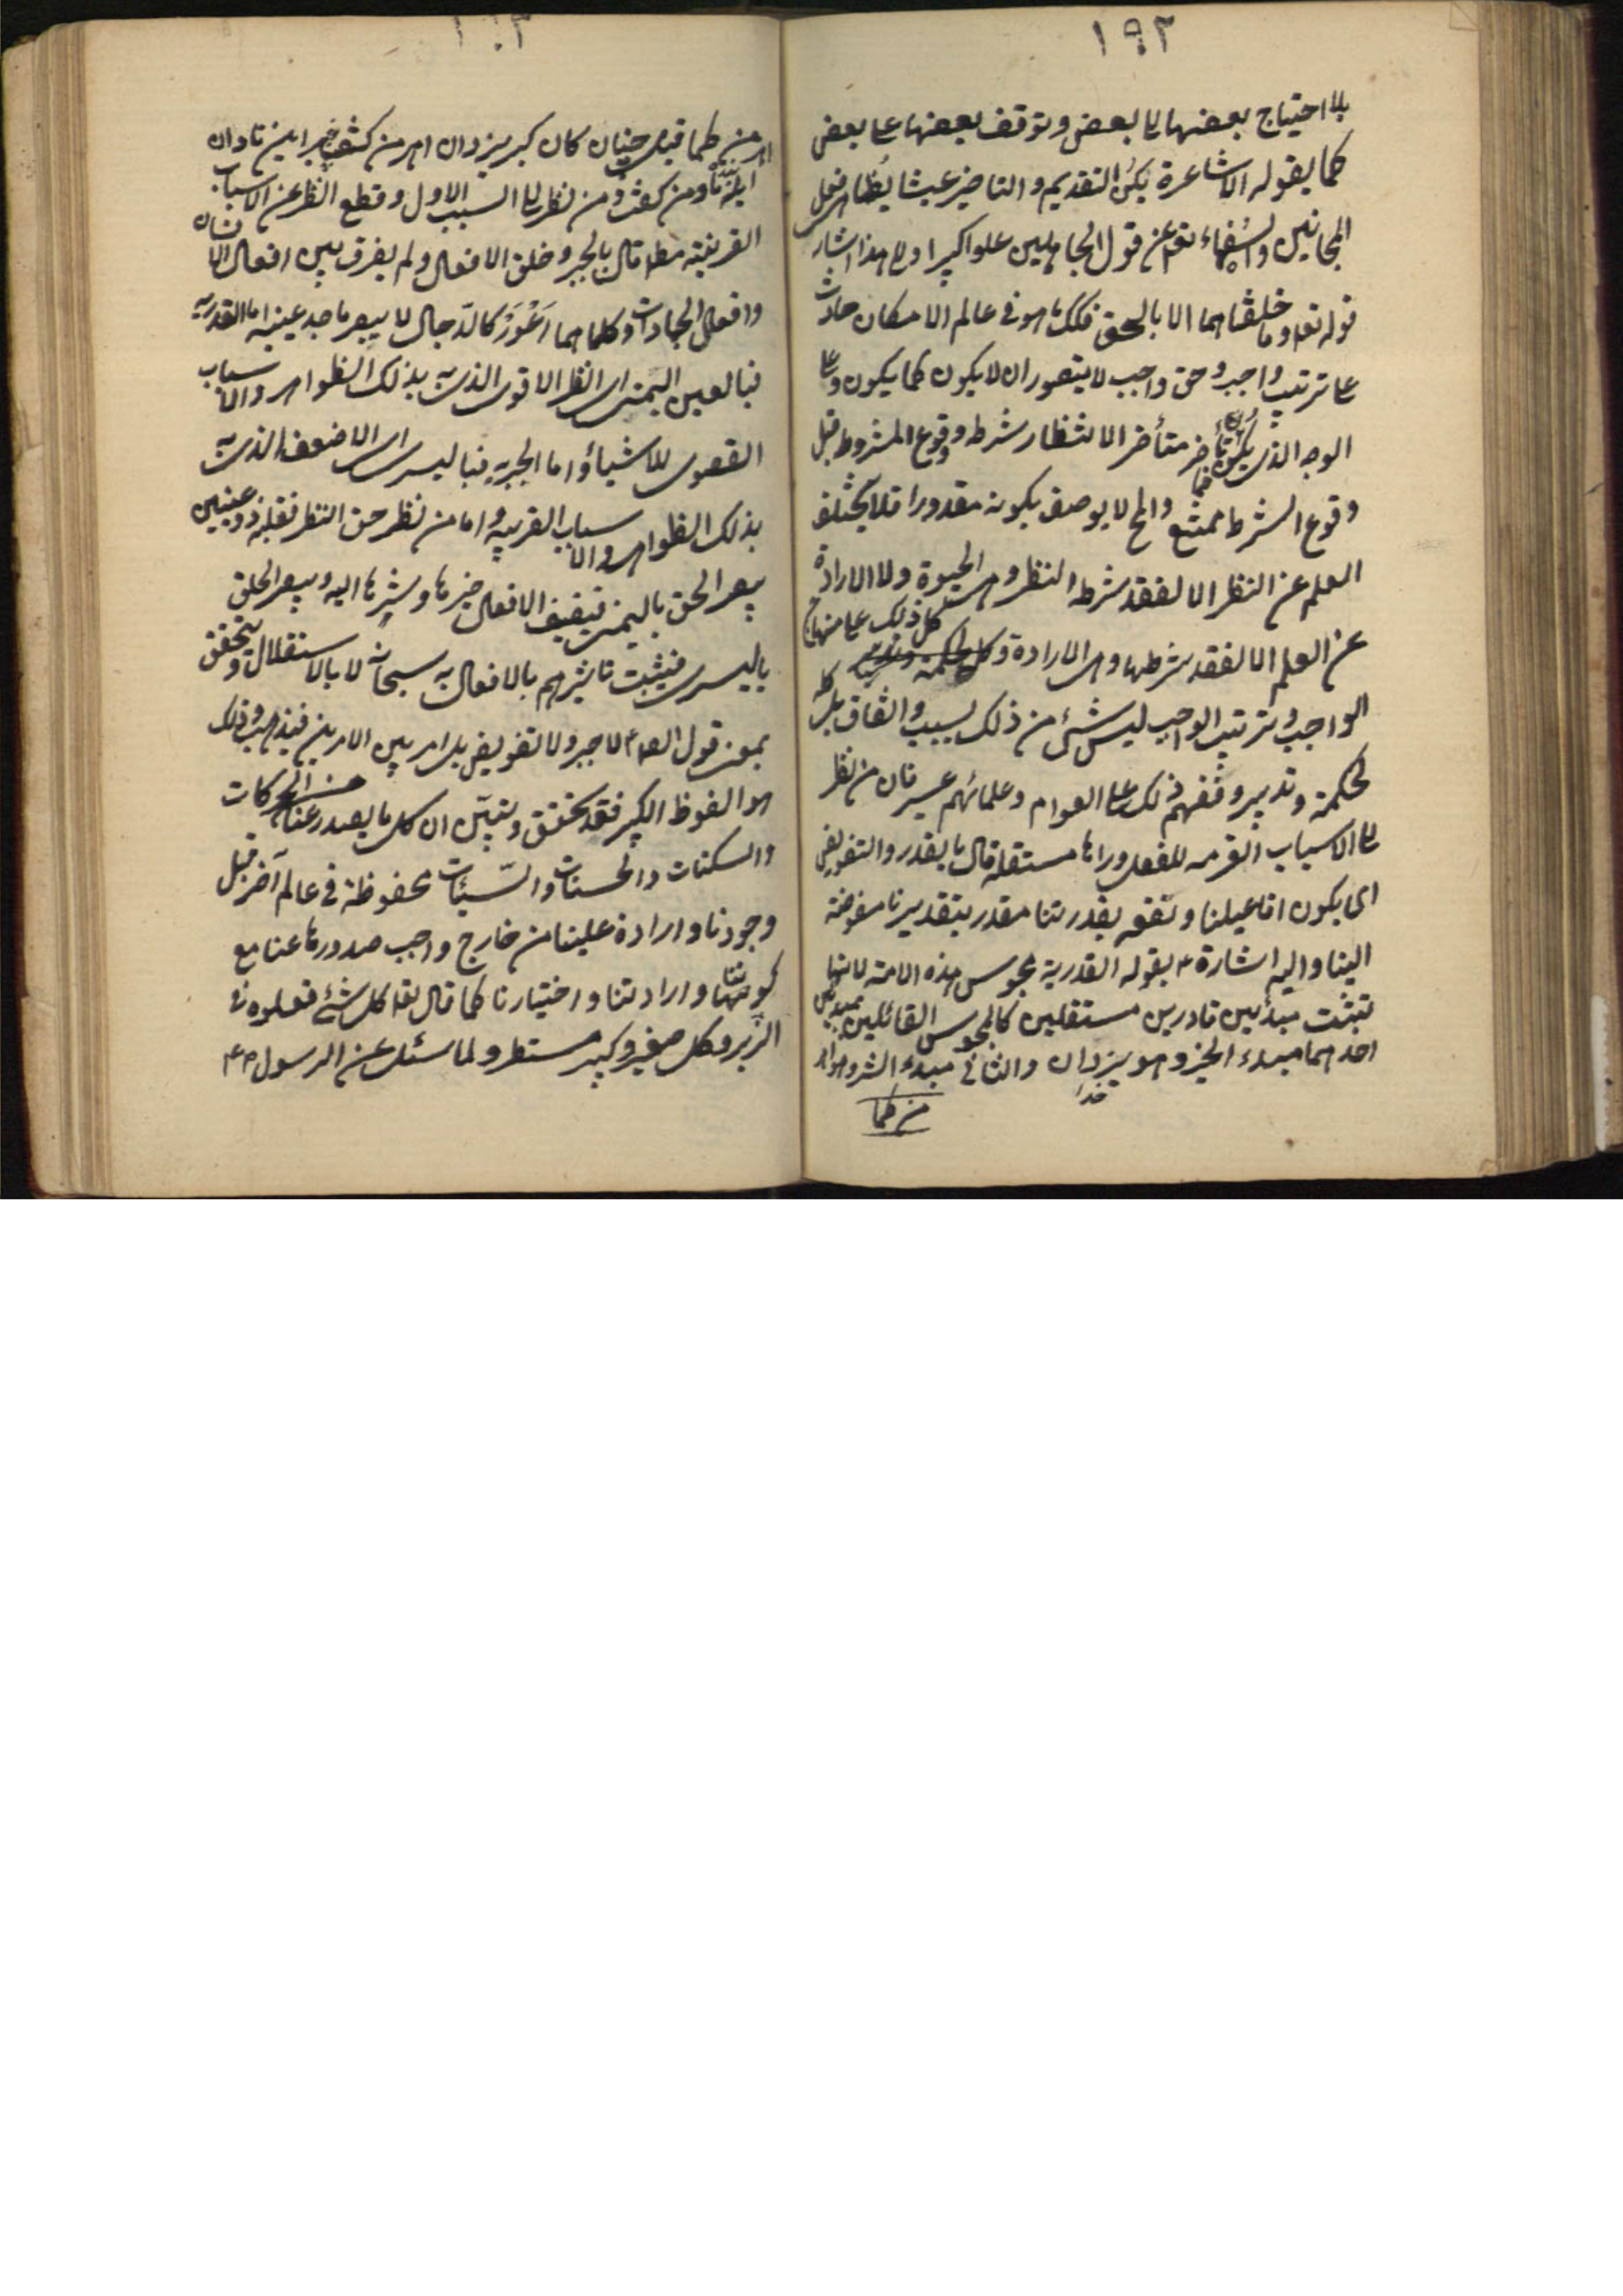 ١٩٢
بلا احتياج بعضها الى بعض وتوقف بعضها على بعض
كما يقوله الاشاعرة يكن التقديم والتاخير عبثا يظاهر فعل
المجانين والسفهاء تع عن قول الجاهلين علوا كبيرا والى هذا اشار
قوله تعه وما خلقناهما الا بالحق فكل ما هو فى عالم الامكان حادث
على ترتيب واجب وحق واجب لا يتصور ان لا يكون كما يكون وعلى
الوجه الذى يكون فما تأخر متأخر الا لانتظار شرطه ووقوع المشروط قبل
وقوع الشرط ممتنع والمح لا يوصف بكونه مقدورا فلا يتخلف
العلم عن النظر الا لفقد شرط النظر وهو الحيوة ولا الارادة
عن العلم الا لفقد شرطها وهو الارادة وكل ذلك على منهاج
الواجب وترتيب الواجب ليس شئ من ذلك بسبب واتفاق بل كله
لحكمة وتدبير وتفهم ذلك على العوام وعلمائهم عسير فان من نظر
الى الاسباب القريبه للفعل وراها مستقلة قال بالقدر والتفويض
اى يكون افاعيلنا وتقع بقدرتنا مقدر بتقديرنا مفوضة
الينا واليه اشارة ع بقوله القدرية مجوس هذه الامة لانها
تثبت مبدئين قادرين مستقلين كالمجوس القائلين بمبدئين
احدهما مبدء الخير وهو يزدان والثانى مبدء الشر وهو اهر
خدا
من كما
اهرمن كما قيل چنان كان كبر يزدان اهرمن كفت همين نادان
اينه ما و من كفت ومن نظر الى السبب الاول وقطع النظر عن الاسباب
القريبة مطه قال بالجبر وخلق الافعال ولم يفرق بين افعال الانسان
وافعال الجمادات وكلاهما اعور كالدجال لا يبصر باحد عينيه اما القدريه
فبالعين اليمنى اى النظر الاقوى الذى به يدرك الظواهر والاسباب
القصوى للاشياء واما الجبريه فباليسرى اى الاضعف الذى به
يدرك الظواهر والاسباب القريبه واما من نظر حق النظر فقلبه ذو عينين
يبصر الحق باليمنى فيضيف الافعال خيرها وشرها اليه ويبصر الخلق
باليسرى فيثبت تاثيرهم بالافعال به سبحانه لا بالاستقلال ويتحقق
بمعنى قول الص ع لا جبر ولا تفويض بل امر بين الامرين فيذهب وذلك
هو الفوظ الكبير فقد تحقق وتبين ان كل ما يصدر عنا من الحركات
والسكنات والحسنات والسيئات محفوظة فى عالم آخر قبل
وجودنا وارادة علينا من خارج واجب صدورها عنا مع
كونها وارادتنا واختيارنا كما قال تعه كل شئ فعلوه فى
الزبر وكل صغير وكبير مستطر ولما سئل عن الرسول ص ع